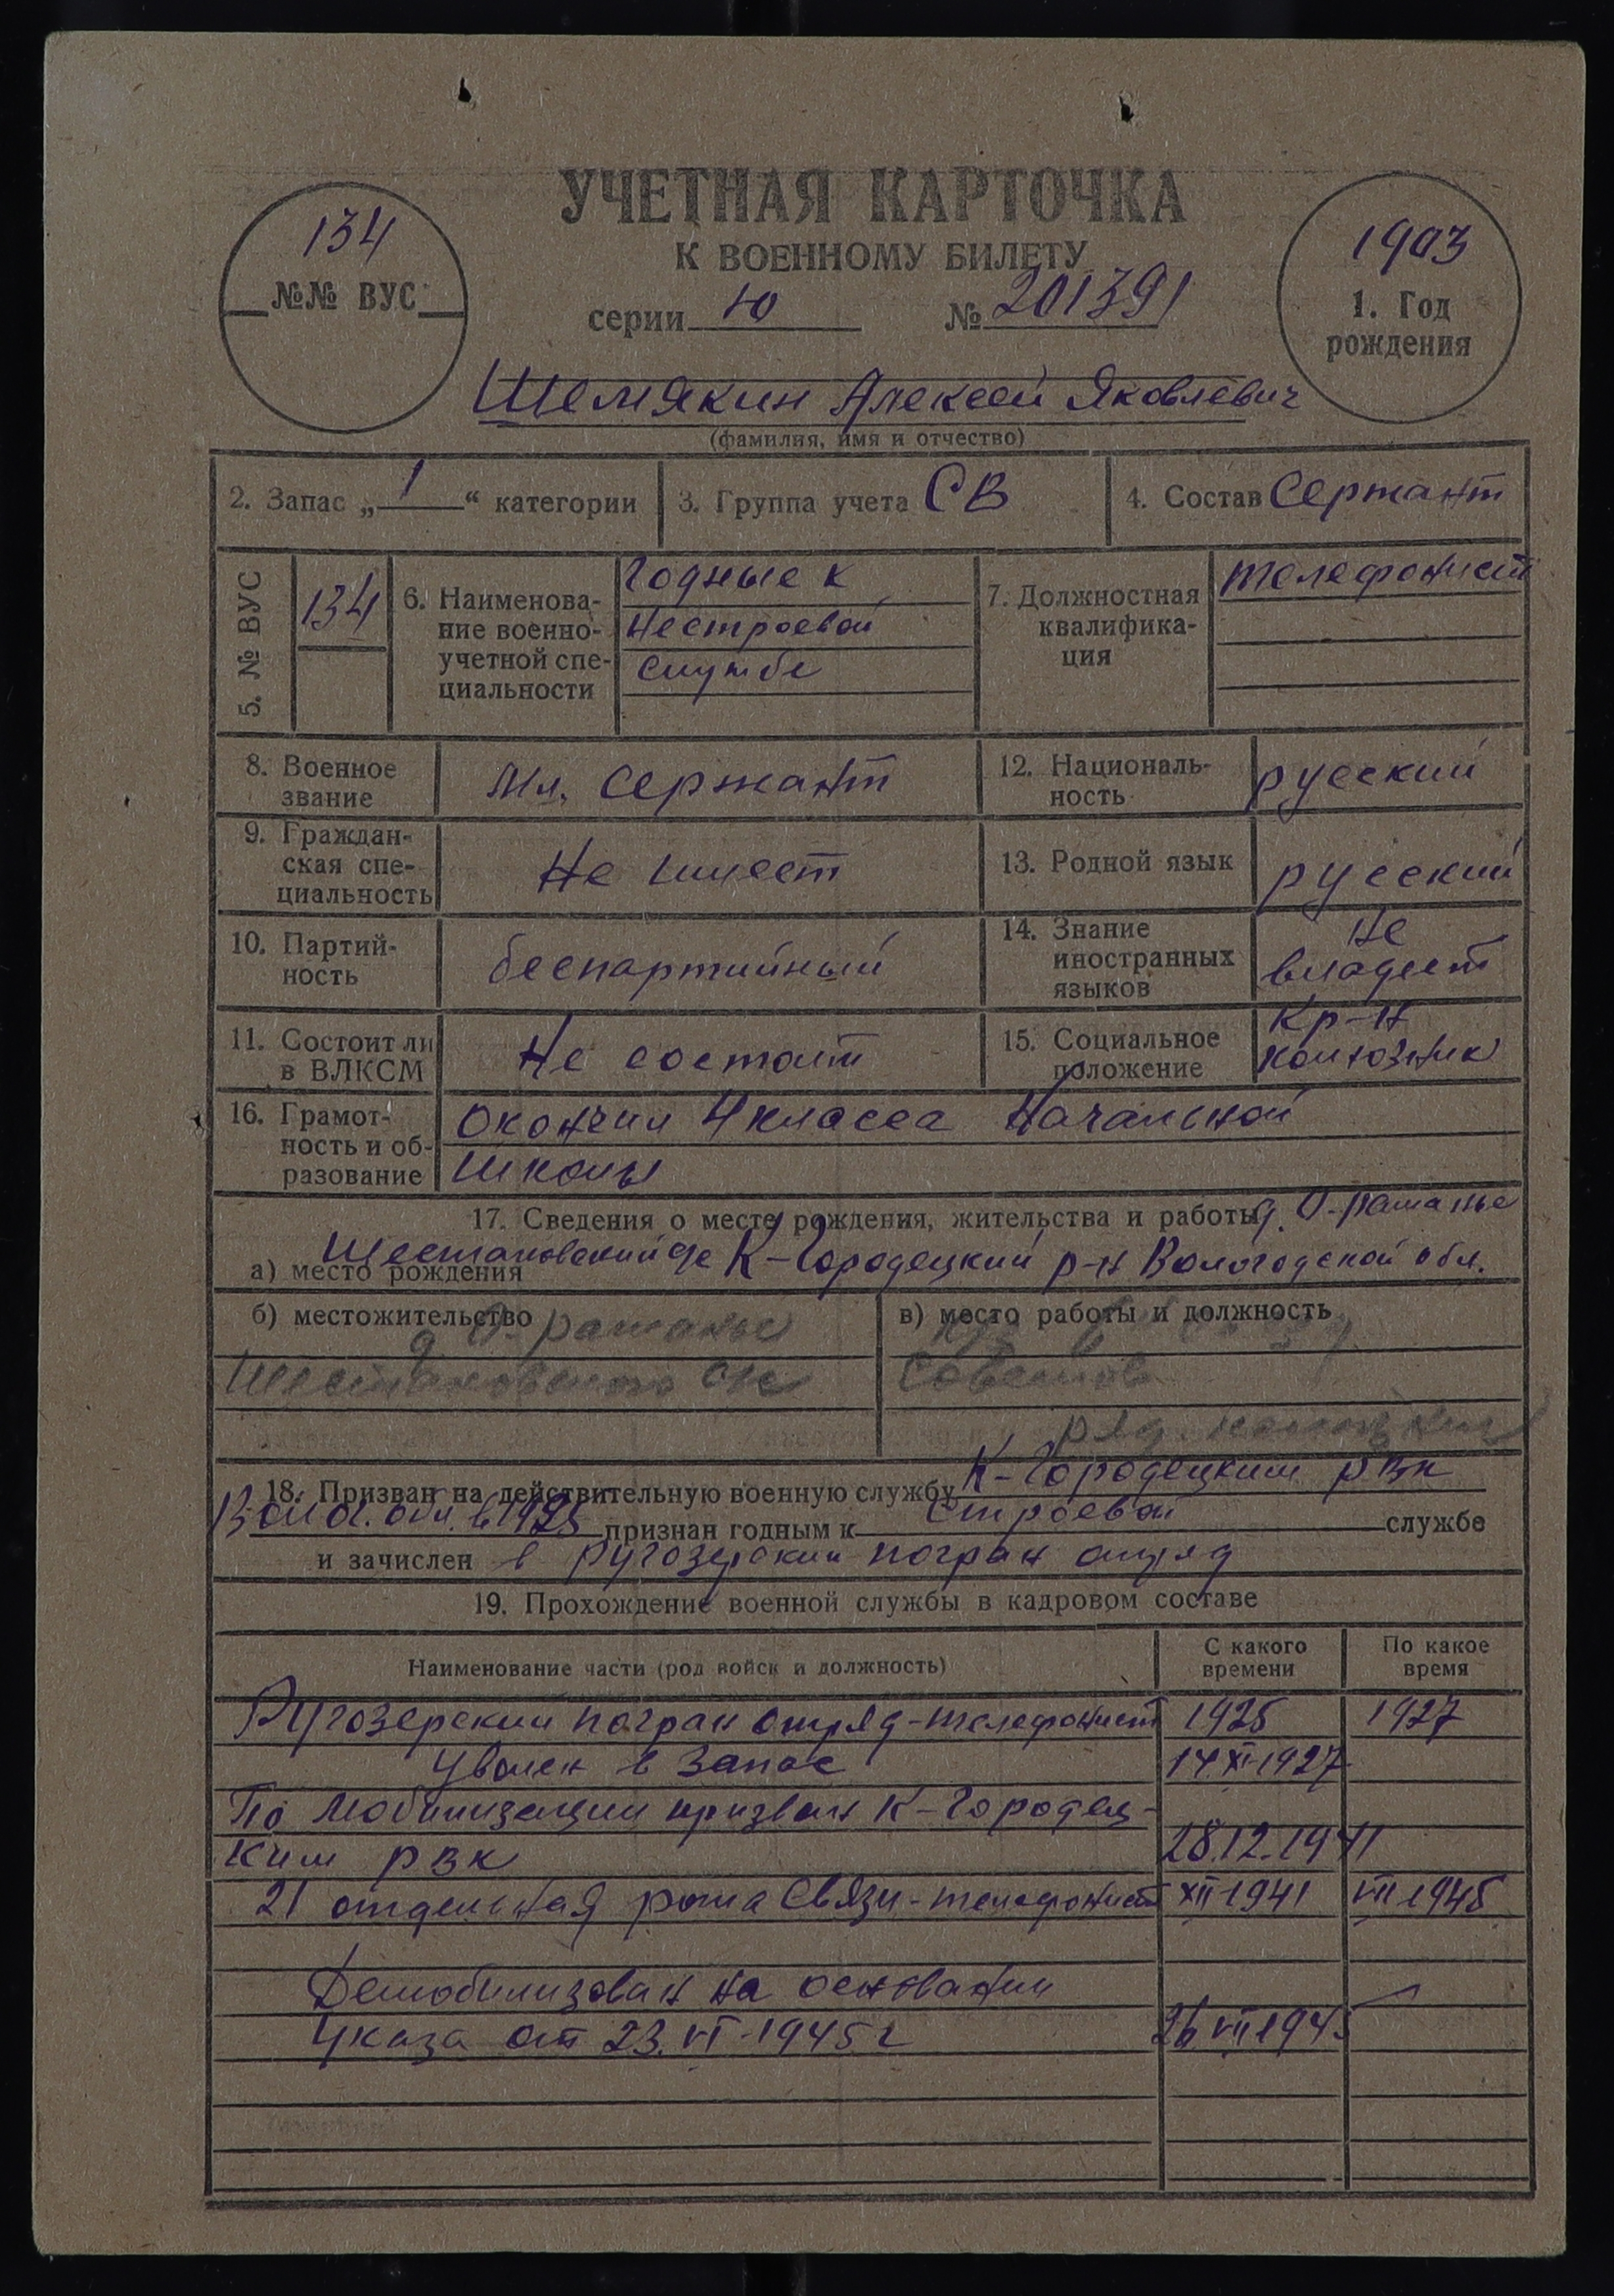 УЧЕТНАЯ КАРТОЧКА
К ВОЕННОМУ БИЛЕТУ
серии Ю № 201391
134
№№ ВУС
1903
1. Год
рождения
Шемякин Алексей Яковлевич
(фамилия, имя и отчество)
2. Запас „1“ категории
3. Группа учета СВ
4. Состав Сержант
5. № ВУС
134
6. Наименова-
ние военно-
учетной спе-
циальности
Годные к
нестроевой
службе
7. Должностная
квалифика-
ция
телефонист
8. Военное
звание
Мл. Сержант
12. Националь-
ность
русский
9. Граждан-
ская спе-
циальность
Не имеет
13. Родной язык
русский
10. Партий-
ность
беспартийный
14. Знание
иностранных
языков
Не
владеет
11. Состоит ли
в ВЛКСМ
Не состоит
15. Социальное
положение
Кр-н
колхозник
16. Грамот-
ность и об-
разование
Окончил 4 класса Начальной
Школы
17. Сведения о месте рождения, жительства и работы
а) место рождения
К-Городецкий р-н Вологодской обл.
б) местожительство
в) место работы и должность
18. Призван на действительную военную службу К-Городецким РВК
Волог. обл. в 1925 признан годным к строевой службе
и зачислен в Ругозерский погран отряд
19. Прохождение военной службы в кадровом составе
Наименование части (род войск и должность)
С какого
времени
По какое
время
Ругозерский погран отряд-телефонист 1925 1927
Уволен в Запас 14.XI-1927
По Мобилизации призван К-Городец-
ким РВК 28.12.1941
21 отдельная рота Связи-телефонист XII-1941 VII-1945
Демобилизован на основании
Указа от 23.VI-1945 г 26.VII-1945